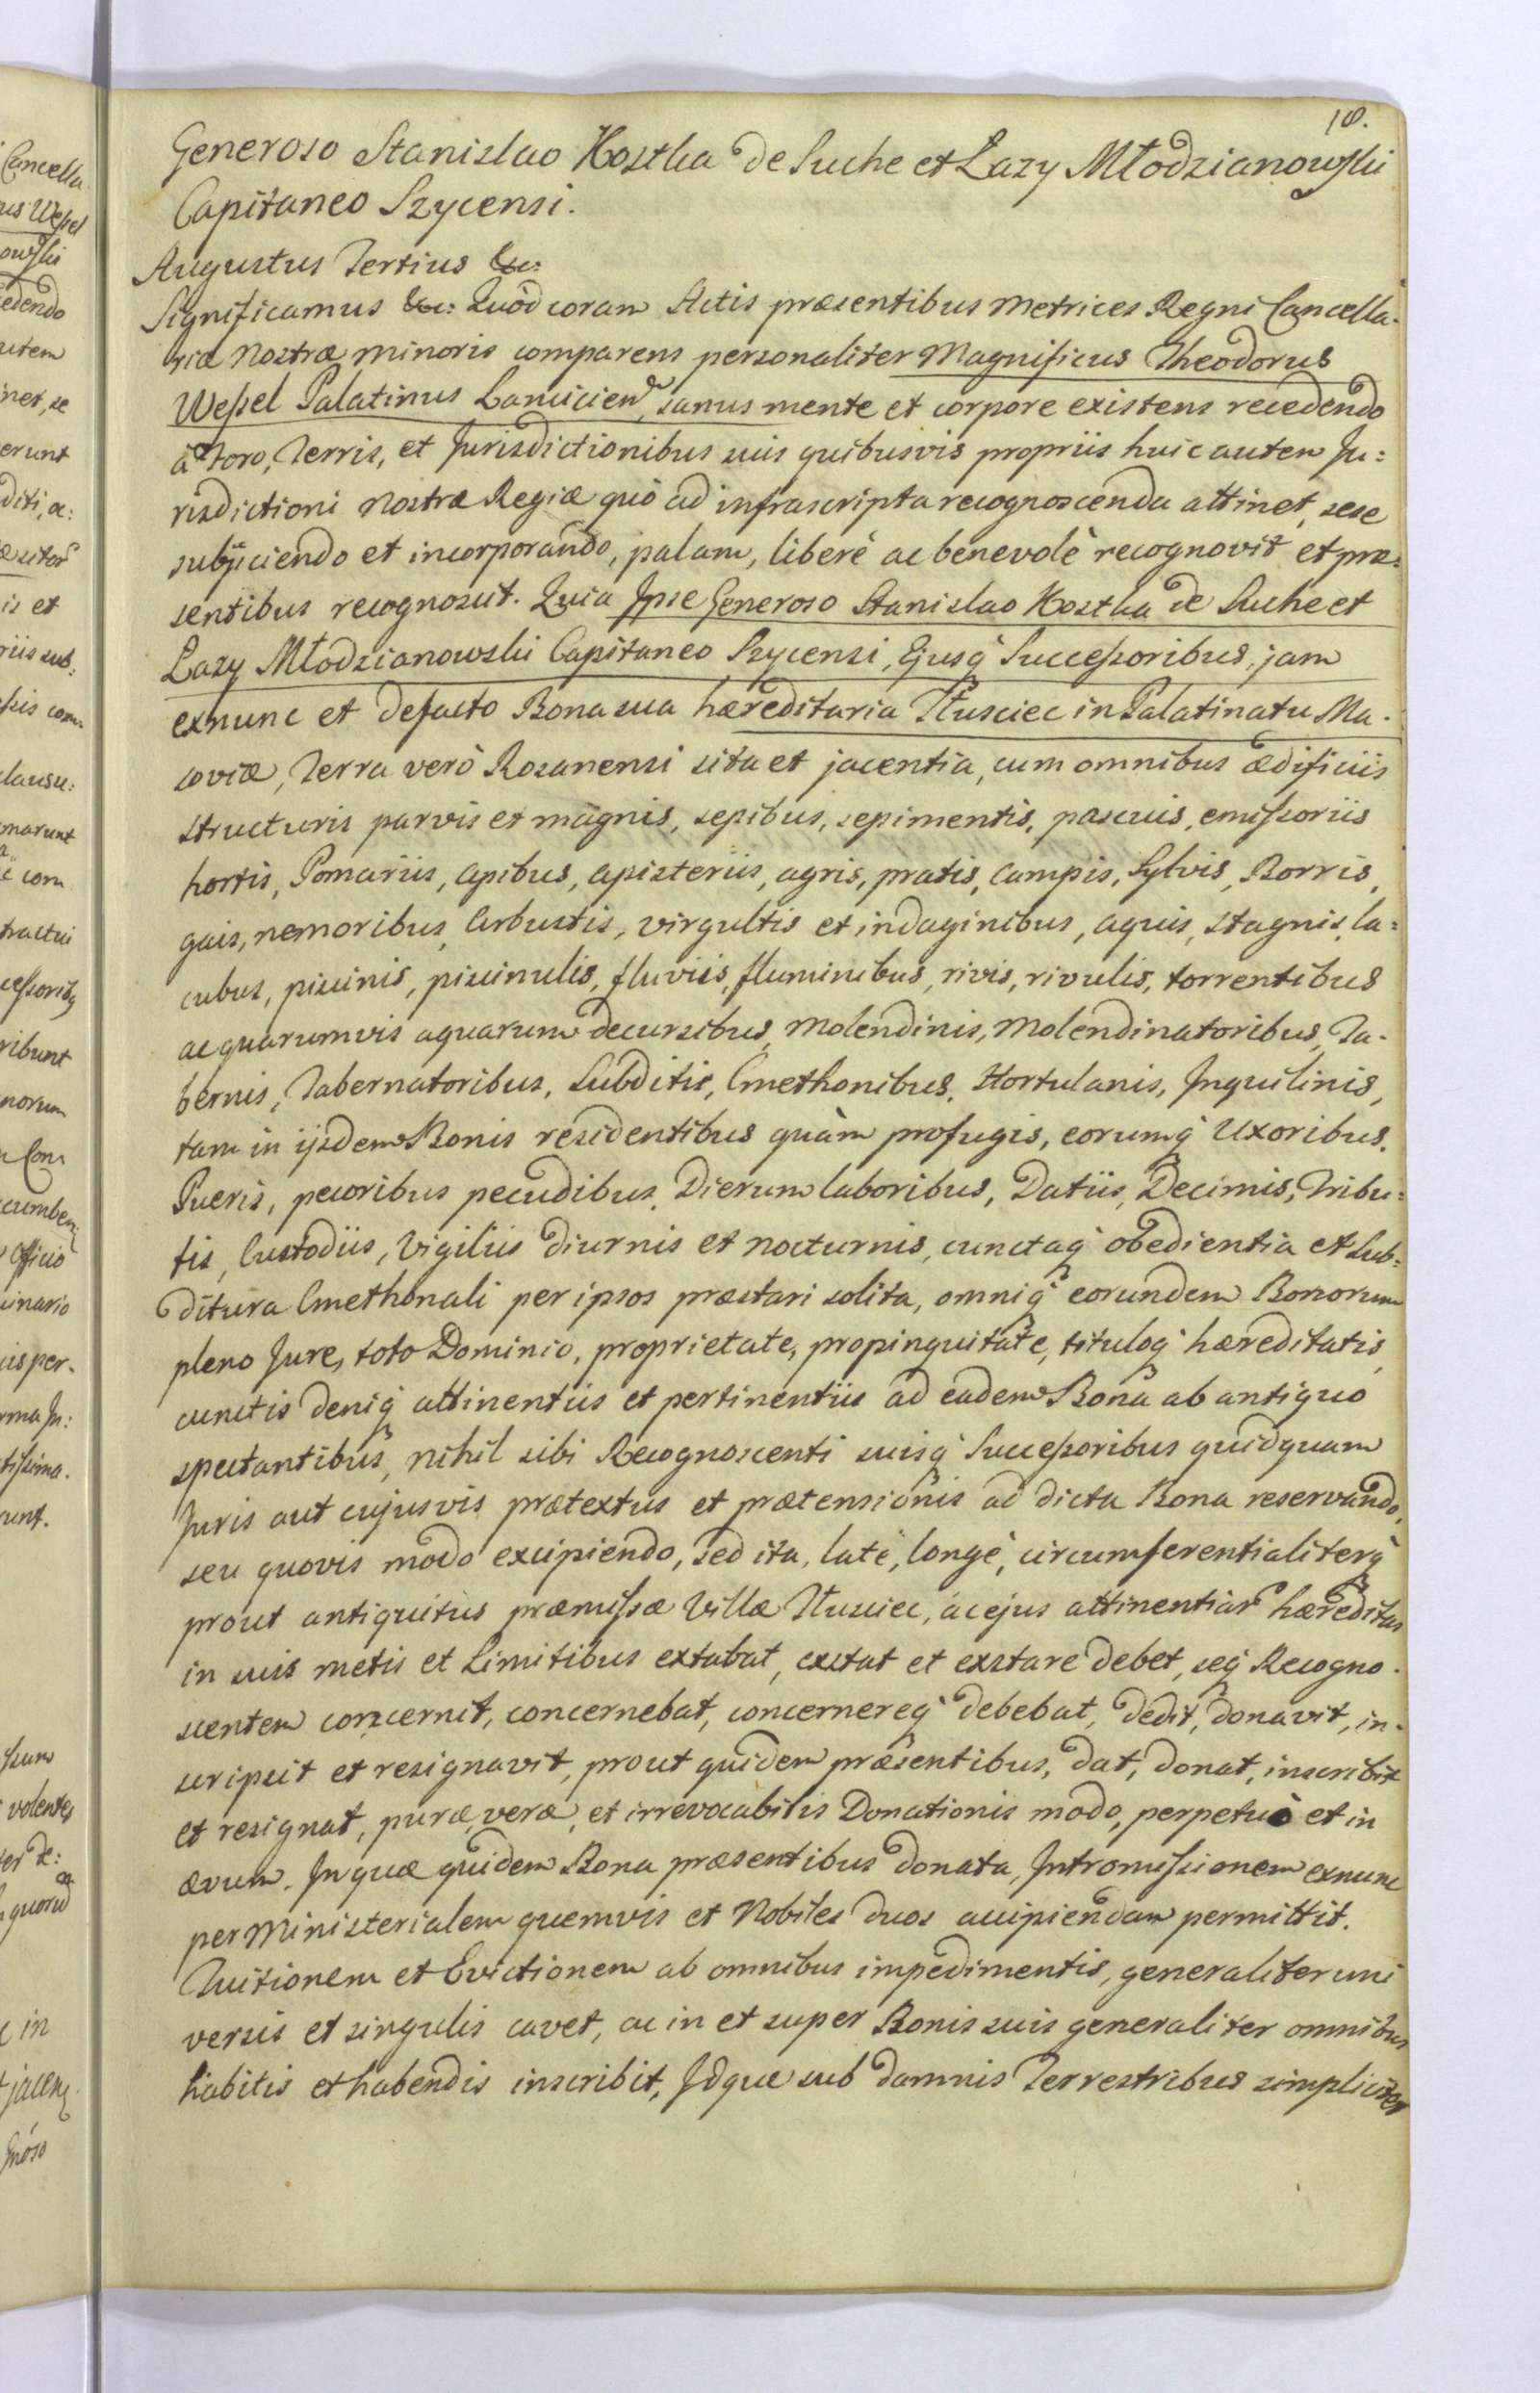 18.
Generoso Stanislao Kostka de Suche et Lazy Młodzianowski
Capitaneo Szycensi.
Augustus Tertius &c:
Significamus &c: Quòd coram Actis præsentibus Metrices Regni Cancella-
riæ Nostræ minoris comparens personaliter Magnificus Theodorus
Wessel Palatinus Lancicien, sanus mente et corpore existens recedendo
à Foro, Terris, et Jurisdictionibus suis quibusvis propriis huic autem Ju:
risdictioni Nostræ Regiæ quò ad infrascripta recognoscenda attinet, sese
subijciendo et incorporando, palam, liberè ac benevolè recognovit et præ:
sentibus recognoscit. Quia Ipse Generoso Stanislao Kostka de Suche et
Lazy Młodzianowski Capitaneo Szycensi, Ejusq Successoribus, jam
exnunc et defacto Bona sua hæreditaria Tłusciec in Palatinatu Ma-
soviæ, Terra verò Rosanensi sita et jacentia, cum omnibus ædificiis
structuris parvis et magnis, sepibus, sepimentis, pascuis, emissoriis
hortis, Pomariis, apibus, apisteriis, agris, pratis, campis, Sylvis, Borris,
gais, nemoribus, Arbustis, virgultis et indaginibus, aquis, stagnis, la=
cubus, piscinis, piscinulis, fluviis, fluminibus, rivis, rivulis, torrentibus
ac quarumvis aquarum decursibus, Molendinis, Molendinatoribus, Ta-
bernis, Tabernatoribus, Subditis, Cmethonibus, Hortulanis, Inquilinis,
tam in ijsdem Bonis residentibus quàm profugis, eorumq Uxoribus,
Pueris, pecoribus pecudibus, Dierum laboribus, Datiis, Decimis, Tribu=
tis, Custodiis, Vigiliis diurnis et nocturnis, cunctaq obedientia et Sub=
ditura Cmethonali per ipsos præstari solita, omniq eorundem Bonorum
pleno Jure, toto Dominio, proprietate, propinquitate, tituloq hæreditatis,
cunctis deniq attinentiis et pertinentiis ad eadem Bona ab antiquo
spectantibus, nihil sibi Recognoscenti suisq Successoribus quidquam
Juris aut cujusvis prætextus et prætensionis ad dicta Bona reservando,
seu quovis modo excipiendo, sed ita, latè, longè, circumferentialiterq
prout antiquitùs præmissæ Villæ Tłusciec, ac ejus attinentiar hæreditas
in suis metis et Limitibus extabat, extat et exstare debet, seq Recogno-
scentem concernit, concernebat, concernereq debebat, dedit, donavit, in-
scripsit et resignavit, prout quidem præsentibus, dat, donat, inscribit
et resignat, puræ, veræ, et irrevocabilis Donationis modo, perpetuò et in
ævum. In quæ quidem Bona præsentibus donata, Intromissionem exnunc
per Ministerialem quemvis et Nobiles duos accipiendam permittit.
Tuitionem et Evictionem ab omnibus impedimentis, generaliter uni
versis et singulis cavet, ac in et super Bonis suis generaliter omnibus
habitis et habendis inscribit, Idque sub damnis Terrestribus simpliciter